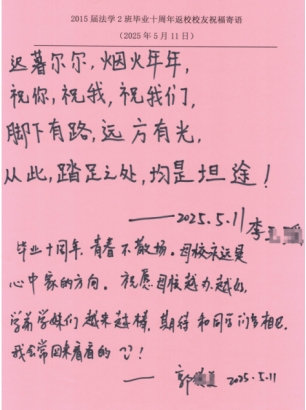 2015届法学2班毕业十周年返校校友祝福寄语
(2025年5月11日)
迟暮尔尔,烟火年年,
祝你,祝我,祝我们,
脚下有路,远方有光,
从此,踏足之处,均是坦途!
——2025.5.11 李
毕业十周年,青春不散场。母校永远是
心中家的方向。祝愿母校越办越好,
学弟学妹们越来越棒,期待和同学们常相见,
我会常回来看看的!
—— 郭 2025.5.11